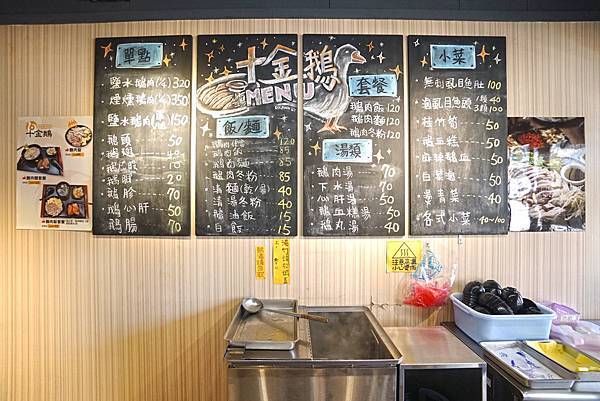 單點
鹽水鵝肉(¼) 320
煙燻鵝肉(¼) 350
鹽水鵝肉 150
鵝頭 50
鵝翅 40
鵝
鵝腱 20
鵝胗 70
鵝心/肝 50
鵝腸 70
十金鵝
MENU
飯/麵
120
85
85
鵝肉冬粉 85
清麵(乾/湯) 40
清湯冬粉 40
鵝油飯 15
白飯 15
套餐
鵝肉飯 120
鵝肉麵 120
鵝肉冬粉 120
湯類
鵝肉湯 70
下水湯 70
心肝血糕湯 70
鵝丸湯 40
小菜
無刺虱目魚肚 100
滷虱目魚頭 1顆 40 3顆 100
桂竹筍 50
鵝血糕 50
麻辣鵝血 50
白菜滷 50
季青菜 50
各式小菜 40~100
十金鵝
注意高溫
小心燙傷